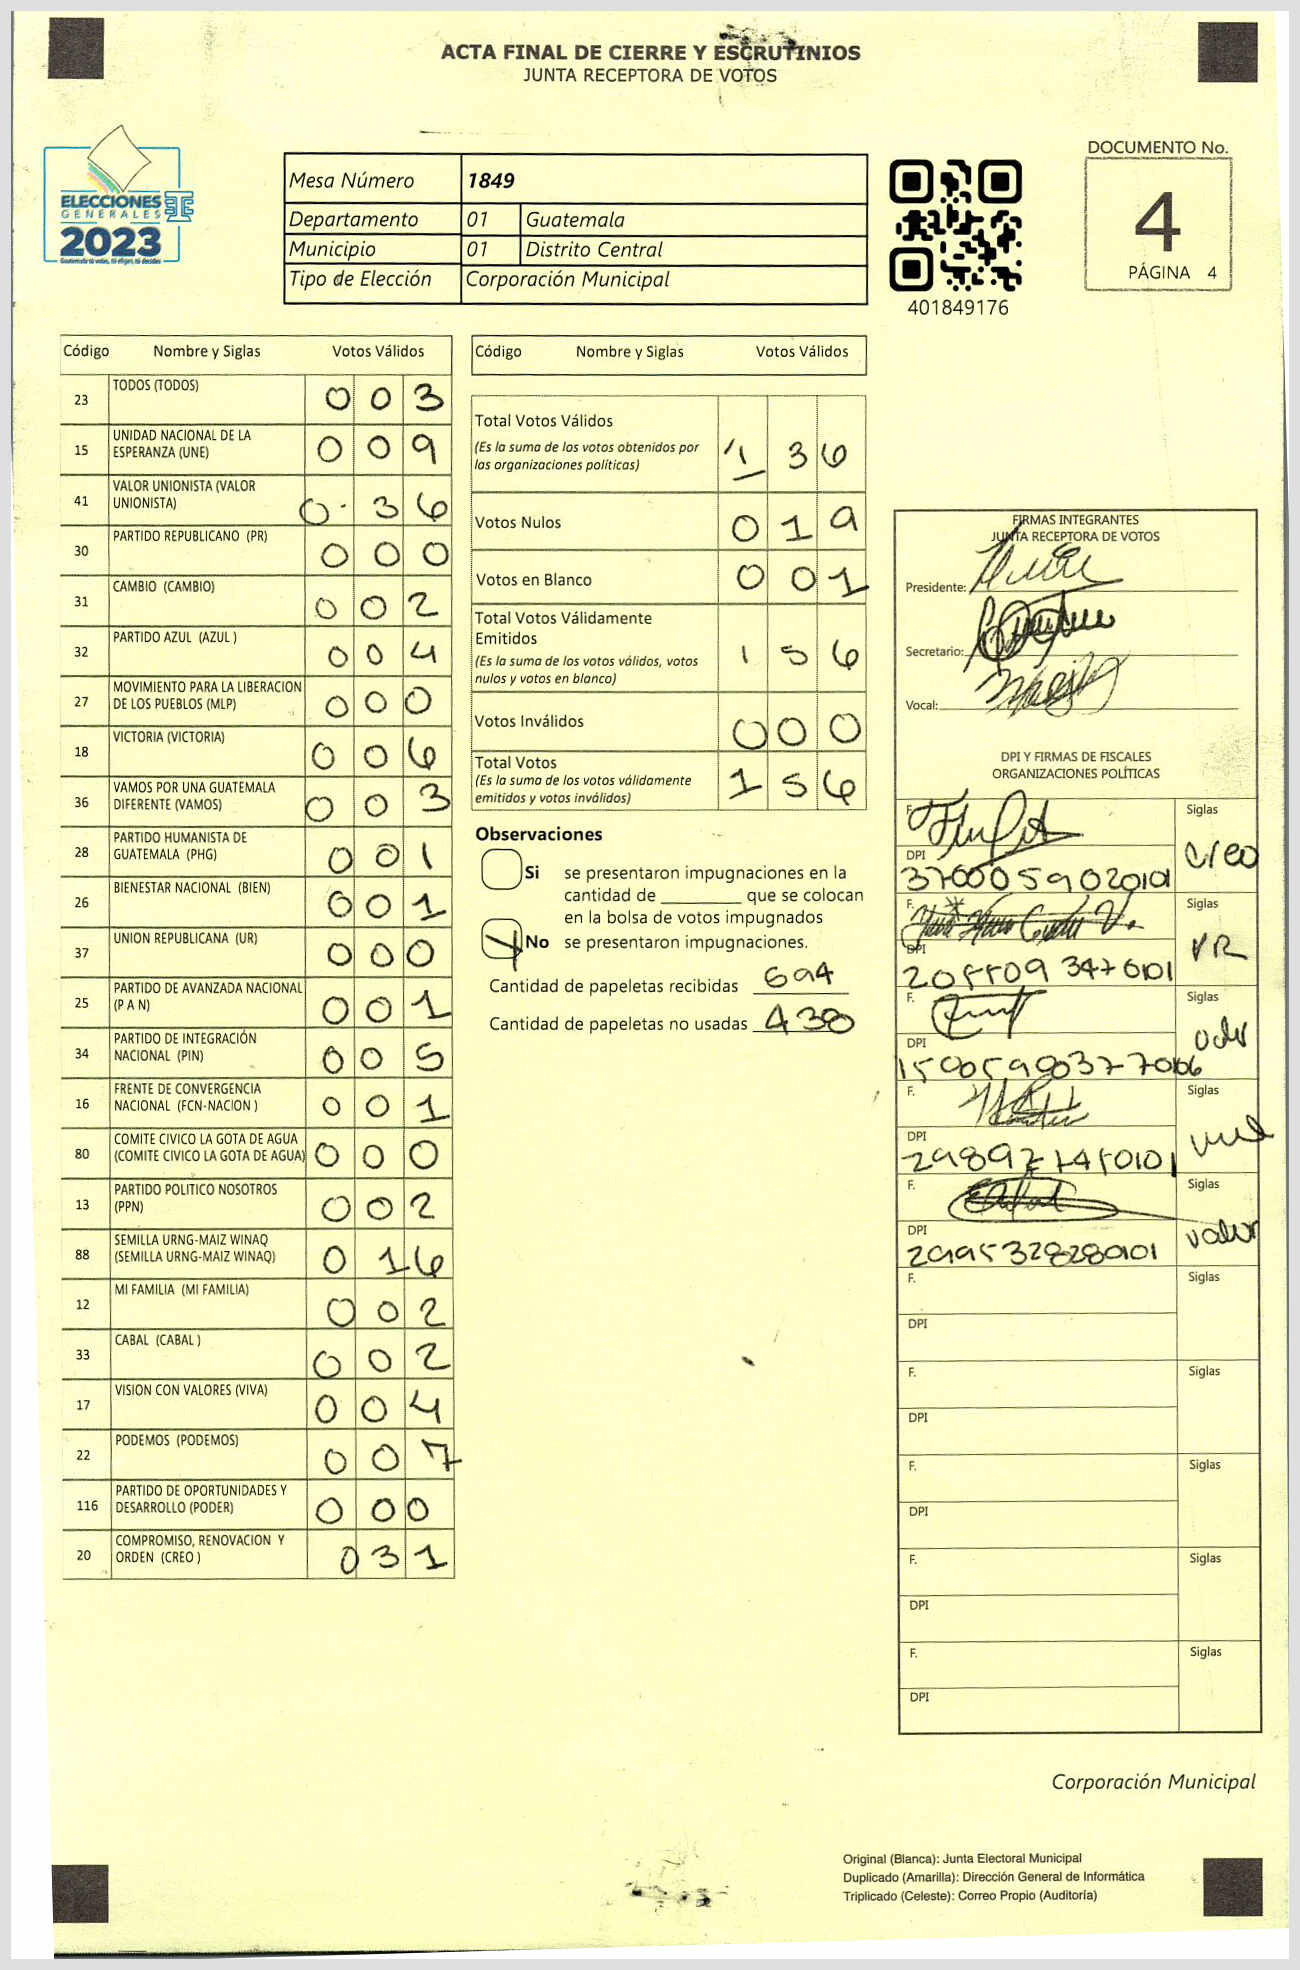 ACTA FINAL DE CIERRE Y ESCRUTINIOS
JUNTA RECEPTORA DE VOTOS
ELECCIONES
GENERALES
2023
Guatemala tú votas, tú eliges, tú decides
Mesa Número 1849
Departamento 01 Guatemala
Municipio 01 Distrito Central
Tipo de Elección Corporación Municipal
401849176
DOCUMENTO No.
4
PÁGINA 4
Código Nombre y Siglas Votos Válidos
23 TODOS (TODOS) 0 0 3
15 UNIDAD NACIONAL DE LA
ESPERANZA (UNE) 0 0 9
41 VALOR UNIONISTA (VALOR
UNIONISTA) 0 3 6
30 PARTIDO REPUBLICANO (PR) 0 0 0
31 CAMBIO (CAMBIO) 0 0 2
32 PARTIDO AZUL (AZUL ) 0 0 4
27 MOVIMIENTO PARA LA LIBERACION
DE LOS PUEBLOS (MLP) 0 0 0
18 VICTORIA (VICTORIA) 0 0 6
36 VAMOS POR UNA GUATEMALA
DIFERENTE (VAMOS) 0 0 3
28 PARTIDO HUMANISTA DE
GUATEMALA (PHG) 0 0 1
26 BIENESTAR NACIONAL (BIEN) 0 0 1
37 UNION REPUBLICANA (UR) 0 0 0
25 PARTIDO DE AVANZADA NACIONAL
(P A N) 0 0 1
34 PARTIDO DE INTEGRACIÓN
NACIONAL (PIN) 0 0 5
16 FRENTE DE CONVERGENCIA
NACIONAL (FCN-NACION ) 0 0 1
80 COMITE CIVICO LA GOTA DE AGUA
(COMITE CIVICO LA GOTA DE AGUA) 0 0 0
13 PARTIDO POLITICO NOSOTROS
(PPN) 0 0 2
88 SEMILLA URNG-MAIZ WINAQ
(SEMILLA URNG-MAIZ WINAQ) 0 1 6
12 MI FAMILIA (MI FAMILIA) 0 0 2
33 CABAL (CABAL ) 0 0 2
17 VISION CON VALORES (VIVA) 0 0 4
22 PODEMOS (PODEMOS) 0 0 7
116 PARTIDO DE OPORTUNIDADES Y
DESARROLLO (PODER) 0 0 0
20 COMPROMISO, RENOVACION Y
ORDEN (CREO ) 0 3 1
Código Nombre y Siglas Votos Válidos
Total Votos Válidos
(Es la suma de los votos obtenidos por
las organizaciones políticas) 1 3 6
Votos Nulos 0 1 9
Votos en Blanco 0 0 1
Total Votos Válidamente
Emitidos
(Es la suma de los votos válidos, votos
nulos y votos en blanco) 1 5 6
Votos Inválidos 0 0 0
Total Votos
(Es la suma de los votos válidamente
emitidos y votos inválidos) 1 5 6
Observaciones
Si se presentaron impugnaciones en la
cantidad de ________ que se colocan
en la bolsa de votos impugnados
No se presentaron impugnaciones.
Cantidad de papeletas recibidas 694
Cantidad de papeletas no usadas 438
FIRMAS INTEGRANTES
JUNTA RECEPTORA DE VOTOS
Presidente:
Secretario:
Vocal:
DPI Y FIRMAS DE FISCALES
ORGANIZACIONES POLÍTICAS
F. Siglas
creo
DPI
3700059020101
F. Siglas
DPI
F. Siglas
DPI
F. Siglas
DPI
F. Siglas
valor
DPI
2995328280101
F. Siglas
DPI
F. Siglas
DPI
F. Siglas
DPI
F. Siglas
DPI
F. Siglas
DPI
Corporación Municipal
Original (Blanca): Junta Electoral Municipal
Duplicado (Amarilla): Dirección General de Informática
Triplicado (Celeste): Correo Propio (Auditoría)